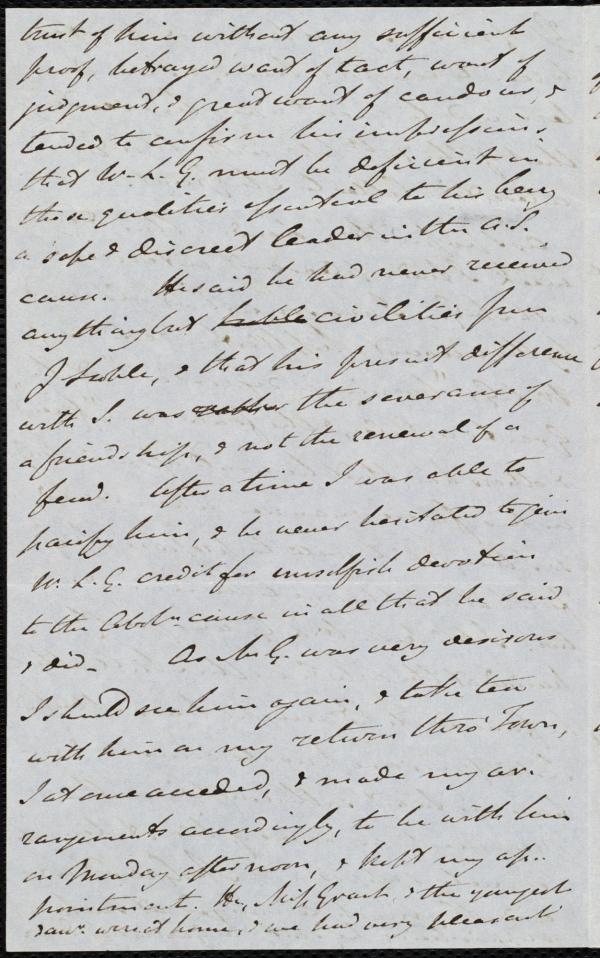 trust of him without any sufficient
proof, betrayed want of tact, want of
judgment, & great want of candour, &
tended to confirm his impression,
that W. L. G. must be deficient in
those qualities essential to his being
a safe & discreet leader in the A.S.
cause. He said he had never received
anything but civilities from
J Scoble, & that his present difference
with S. was rather the severance of
a friendship, & not the renewal of a
feud. After a time I was able to
pacify him, & he never hesitated to give
W. L. G. credit for unselfish devotion
to the Abolⁿ cause in all that he said
& did. As Mr G. was very desirous
I should see him again, & take tea
with him on my return thro' Town,
I at once acceded, & made my ar-
rangements accordingly, to be with him
on Monday afternoon, & kept my ap-
pointment. He, Miss Grant, & the youngest
daur. were at home, & we had very pleasant